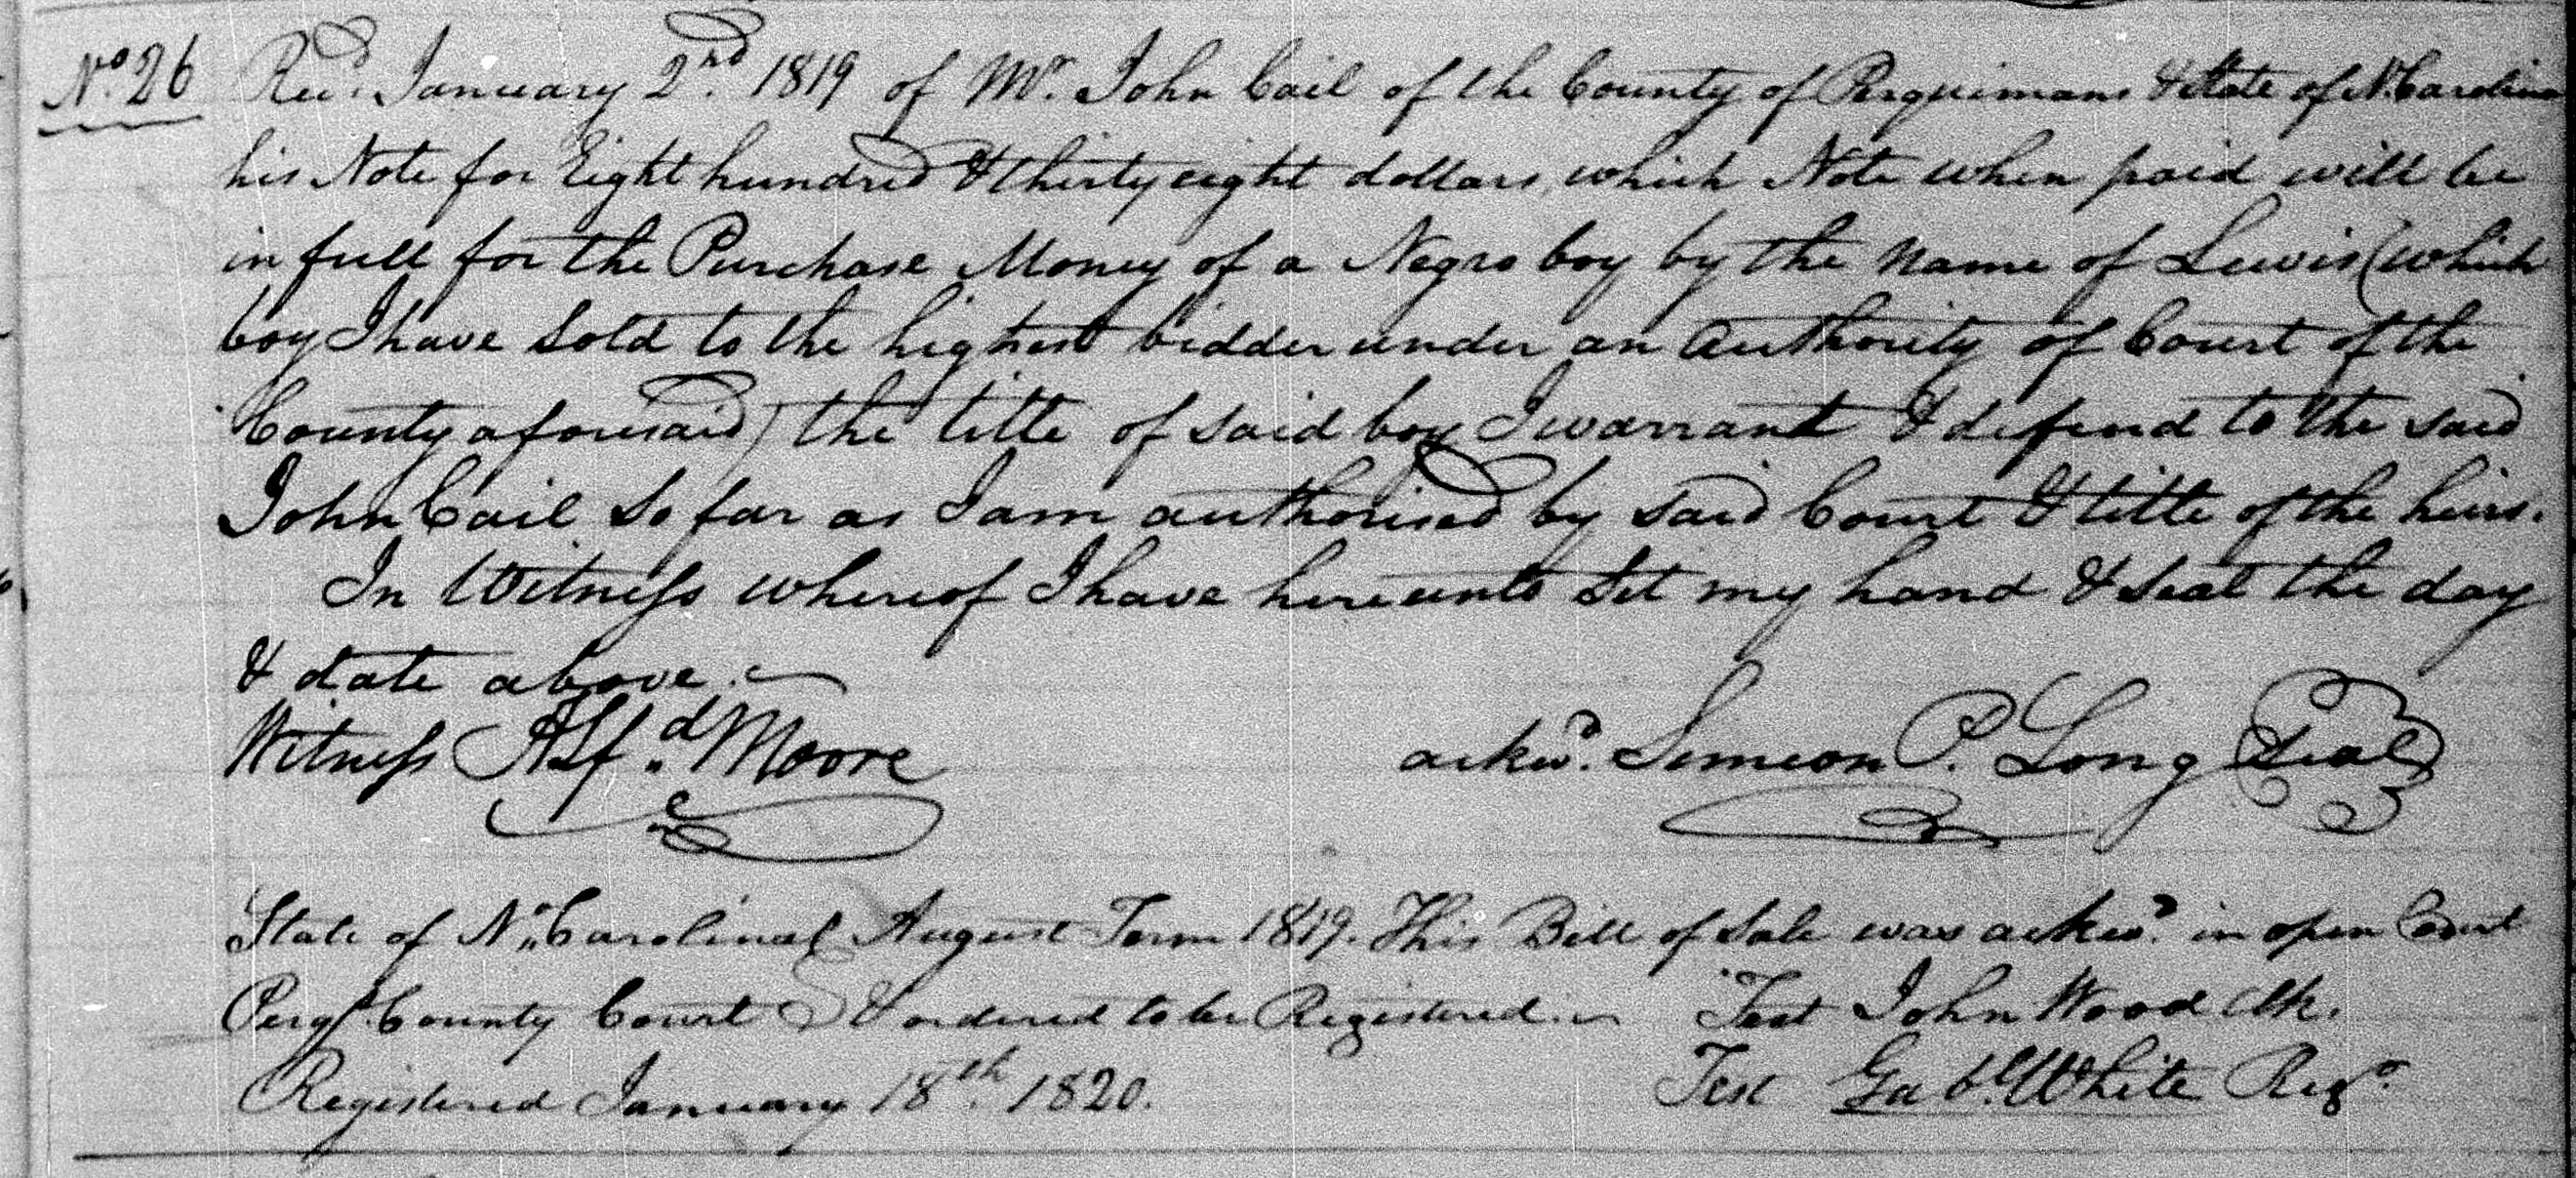 No. 26 Recd. January 2nd. 1819 of Mr. John Cail of the County of Perquimans & State of N. Carolina
his Note for Eight hundred & thirty eight dollars, which Note when paid will be
in full for the Purchase Money of a Negro boy by the name of Lewis (which
boy I have sold to the highest bidder under an Authority of Court of the
County aforesaid) the title of said boy I warrant & defend to the said
John Cail so far as I am authorised by said Court & title of the heirs.
In Witness whereof I have hereunto set my hand & seal the day
& date above.
Witness Alfd. Moore ackd. Simeon P. Long Seal
State of No. Carolina August Term 1819. This Bill of Sale was ackd. in open Court
Perqs. County Court & ordered to be Registered. Test John Wood Clk.
Registered January 18th. 1820. Test Gabl. White Regr.